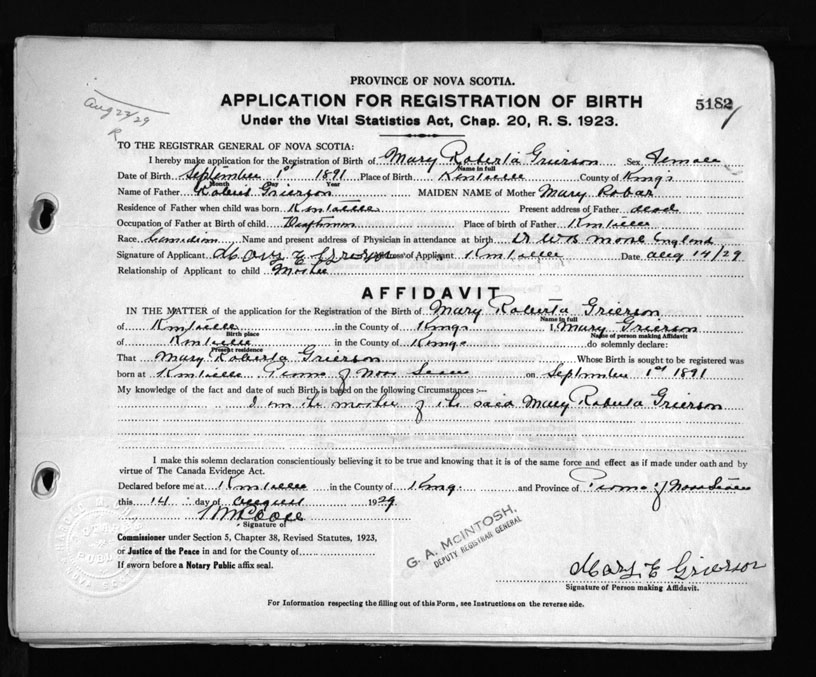 PROVINCE OF NOVA SCOTIA.
Aug 22/29
R
APPLICATION FOR REGISTRATION OF BIRTH
5182
Under the Vital Statistics Act, Chap. 20, R. S. 1923.
TO THE REGISTRAR GENERAL OF NOVA SCOTIA:
I hereby make application for the Registration of Birth of Mary Roberta Grierson Sex Female
Name in full
Date of Birth September 1st 1891 Place of Birth Kentville County of Kings
Month Day Year
Name of Father Robert Grierson MAIDEN NAME of Mother Mary Robar
Residence of Father when child was born Kentville Present address of Father dead
Occupation of Father at Birth of child Place of birth of Father Kentville
Race Canadian Name and present address of Physician in attendance at birth Dr W B Moore England
Signature of Applicant Mary E Grierson Address of Applicant Kentville Date Aug 14/29
Relationship of Applicant to child Mother
AFFIDAVIT
IN THE MATTER of the application for the Registration of the Birth of Mary Roberta Grierson
Name in full
of Kentville in the County of Kings I, Mary Grierson
Birth place Name of person making Affidavit
of Kentville in the County of Kings do solemnly declare:
Present residence
That Mary Roberta Grierson Whose Birth is sought to be registered was
born at Kentville Province of Nova Scotia on September 1st 1891
My knowledge of the fact and date of such Birth is based on the following Circumstances :—
I am the mother of the said Mary Roberta Grierson
I make this solemn declaration conscientiously believing it to be true and knowing that it is of the same force and effect as if made under oath and by
virtue of The Canada Evidence Act.
Declared before me at Kentville in the County of Kings and Province of Province of Nova Scotia
this 14 day of August 1929
Signature of
Commissioner under Section 5, Chapter 38, Revised Statutes, 1923,
or Justice of the Peace in and for the County of
If sworn before a Notary Public affix seal.
G. A. McINTOSH,
DEPUTY REGISTRAR GENERAL
Mary E Grierson
Signature of Person making Affidavit.
For Information respecting the filling out of this Form, see Instructions on the reverse side.